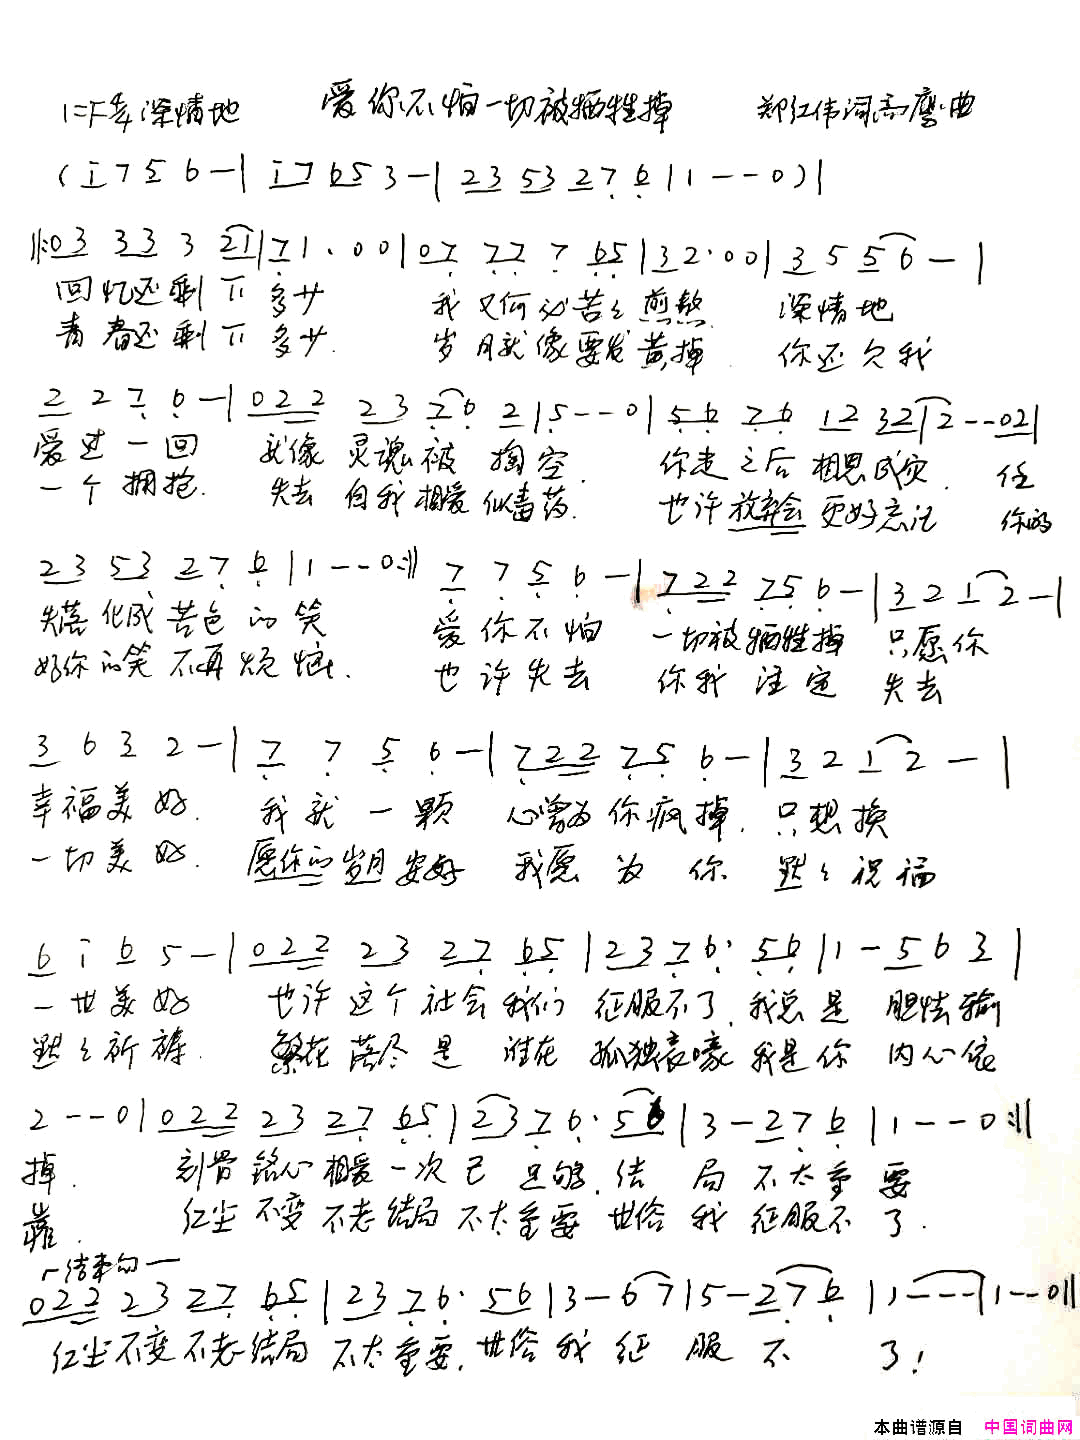 1=F 4/4 深情地 爱你不怕一切被牺牲掉 郑红伟词高鹰曲
(i 7 5 6 - | i 7 6 5 3 - | 2 3 5 3 2 7 6 | 1 - - 0 ) |
‖: 0 3 3 3 3 2 1 | 7 1 . 0 0 | 0 7 7 7 7 6 5 | 3 2 . 0 0 | 3 5 5 6 - |
回忆还剩下 多少 我又何必苦苦煎熬 深情地
青春还剩下 多少 岁月就像要发黄掉 你还欠我
2 2 7 6 - | 0 2 2 2 3 7 6 2 | 5 - - 0 | 5 6 7 6 1 2 3 2 1 | 2 - - 0 2 |
爱过一回 就像灵魂被掏空 你走之后相思成灾 任
一个拥抱 失去自我相爱似毒药 也许放弃会更好忘记 你的
2 3 5 3 2 7 6 | 1 - - 0 :‖ 7 7 5 6 - | 7 2 2 7 5 6 - | 3 2 1 2 - |
失落化成苦色的笑 爱你不怕 一切被牺牲掉 只愿你
好你的笑不再烦恼 也许失去 你我注定 失去
3 6 3 2 - | 7 7 5 6 - | 7 2 2 7 5 6 - | 3 2 1 2 - |
幸福美好 我就一颗 心曾为你疯掉 只想换
一切美好 愿你的岁月安好 我愿为你 默默祝福
6 i 6 5 - | 0 2 2 2 3 2 7 6 5 | 2 3 7 6 . 5 6 | 1 - 5 6 3 |
一世美好 也许这个社会我们 征服不了 我总是 胆怯输
默默祈祷 繁花落尽是 谁在 孤独哀嚎 我是你 内心依
2 - - 0 | 0 2 2 2 3 2 7 6 5 | 2 3 7 6 . 5 6 | 3 - 2 7 6 | 1 - - 0 :‖
掉 刻骨铭心相爱一次已 足够 结 局 不太重要
靠 红尘不变不老结局 不太重要 世俗我 征服不了
结束句
0 2 2 2 3 2 7 6 5 | 2 3 7 6 . 5 6 | 3 - 6 7 | 5 - 2 7 6 | 1 - - - | 1 - - 0 ‖
红尘不变不老结局 不太重要 世俗我 征 服 不 了!
本曲谱源自 中国词曲网